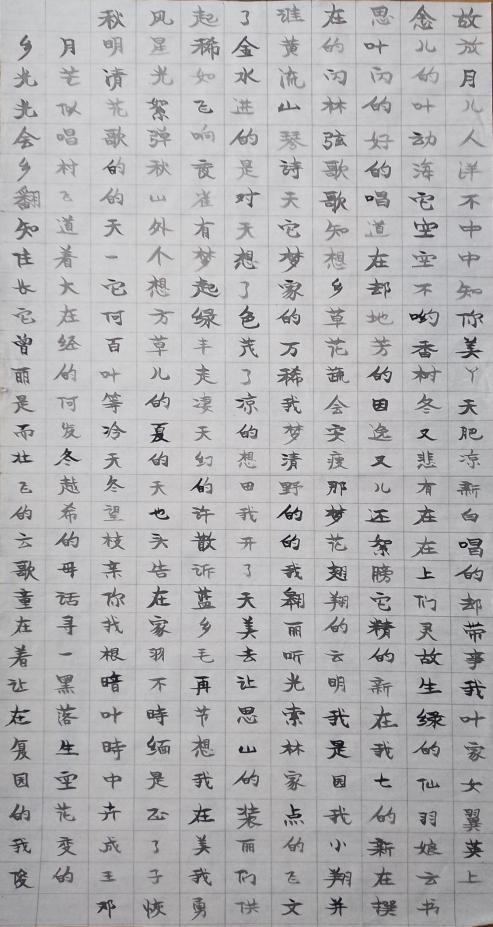 秋风起了谁在思念故
乡月明星稀金黄的叶儿放
光芒清光如水流闪闪的月
光似花絮飞进山林的叶儿
会唱歌弹响的琴弦好动人
乡村的秋夜是诗歌的海洋
翻飞的山雀对天歌唱它不
知道天外有天它知道空中
住着一个梦想梦想在空中
长大它想起了家乡却不知
它在何方绿色的草地哟你
曾经百草丰茂万花芳香美
丽的叶儿走了稀疏的树丫
是何等的凄凉我会因冬天
而发冷夏天的梦安逸又肥
壮冬天的幻想清瘦又悲凉
飞越冬天的田野那儿有新
的希望也许我的梦还在白
云的枝头散开的花絮在唱
歌母亲告诉了我翅膀上的
童话你在蓝天翱翔它们却
在寻找家乡美丽的精灵带
着一根羽毛去听云的故事
让黑暗不再让光明新生我
在落叶時节思索我在绿叶
复生時缅想山林是我的家
园空中是我的家园七仙女
的花卉正在装点我的羽翼
我变成了美丽的小新娘英
俊的王子我们飞翔在云上
邓恢勇供文并撰书